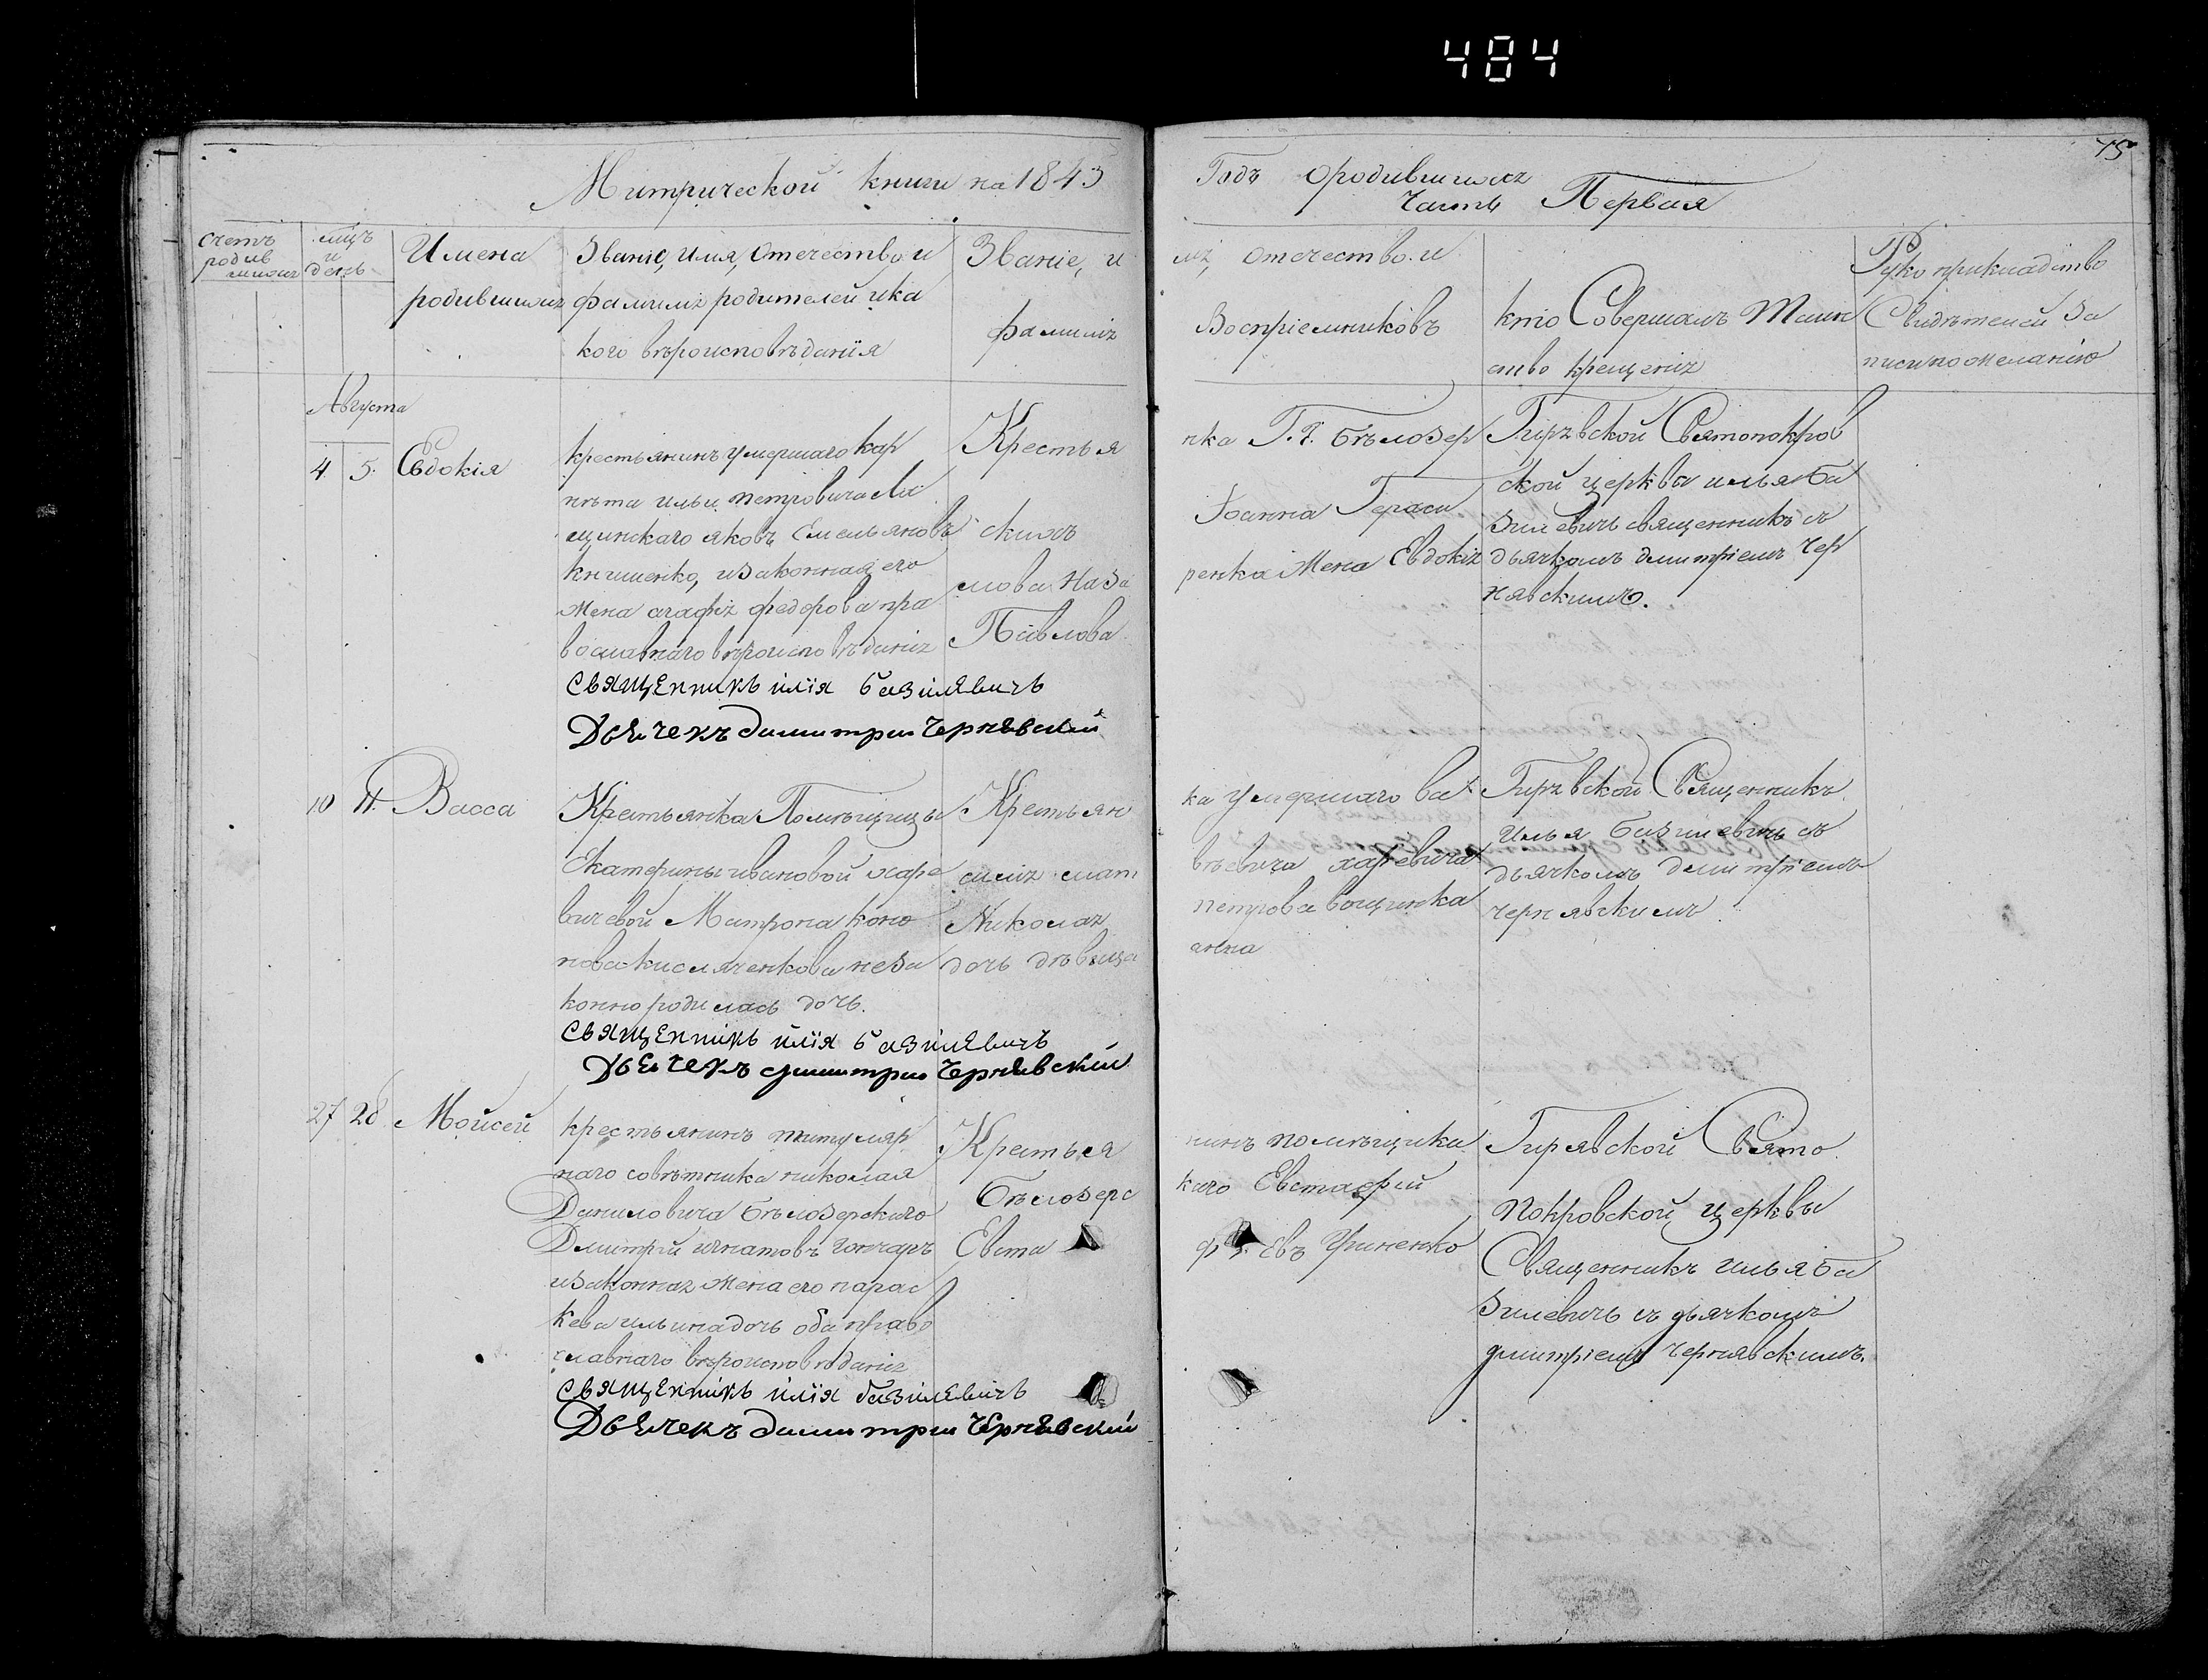 484
15
Митрической книги на 1843
Годъ ородившихся
Часть Первая
счетъ
родив
шихся
мцъ
и
день
Имена
родившихся
Званіе, имя, отечество и
фамилія родителей ика
кого вѣроисповѣданія
Званіе, и
фамилія
мя, отечество и
Воспріемниковъ
кто Совершалъ Таин
ство крещенія
Рукоприкладство
Свидѣтелей За
писи по желанію
Августа
4 5. Евдокія
крестьянинъ умершаго кор
нѣта ильи петровича
щинскаго яковъ Емельяновъ
книшенко, изаконная его
жена агафія федорова пра
вославнаго вѣроисповѣданія
священникъ илія базілевичъ
Дьячекъ димитрій Чернявскій
Крестья
скихъ
мова наза
Павлова
нка Г. Г. бѣлозер
Іоанна Гераси
ренка жена Евдокія
Гирявской Святопокров
ской церкви илья ба
зилевичъ священникъ съ
дьячкомъ димитріемъ Чер
нявскимъ.
10 11. Васса
Крестьянка Помѣщицы
Екатерины ивановой харе
вичевой Матрона коно
нова кисляченкова неза
конно родилась дочь.
священникъ илія базілевичъ
Дьячекъ димитрій Чернявскій
Крестьян
силія мат
Николая
дочь дѣвица
ка умершаго ва
вѣевича харевича
петрова вощинка
анна
Гирявской Священникъ
илья базилевичъ съ
дьячкомъ димитріемъ
чернявскимъ
27 28. Мойсей
крестьянинъ титуляр
наго совѣтника николая
Даниловича бѣлозерскаго
Дмитрій игнатовъ гончаръ
изаконная жена его парас
кева ильина дочь оба право
славнаго вѣроисповѣданія
священникъ илія базілевичъ
Дьячекъ димитрій Чернявскій
Крестья
бѣлозерс
Евста
нинъ помѣщика
каго Евстафій
евъ Гриненко
Гирявской Свято
покровской церквы
Священникъ илья ба
зилевичъ съ дьячкомъ
димитріемъ чернявскимъ.